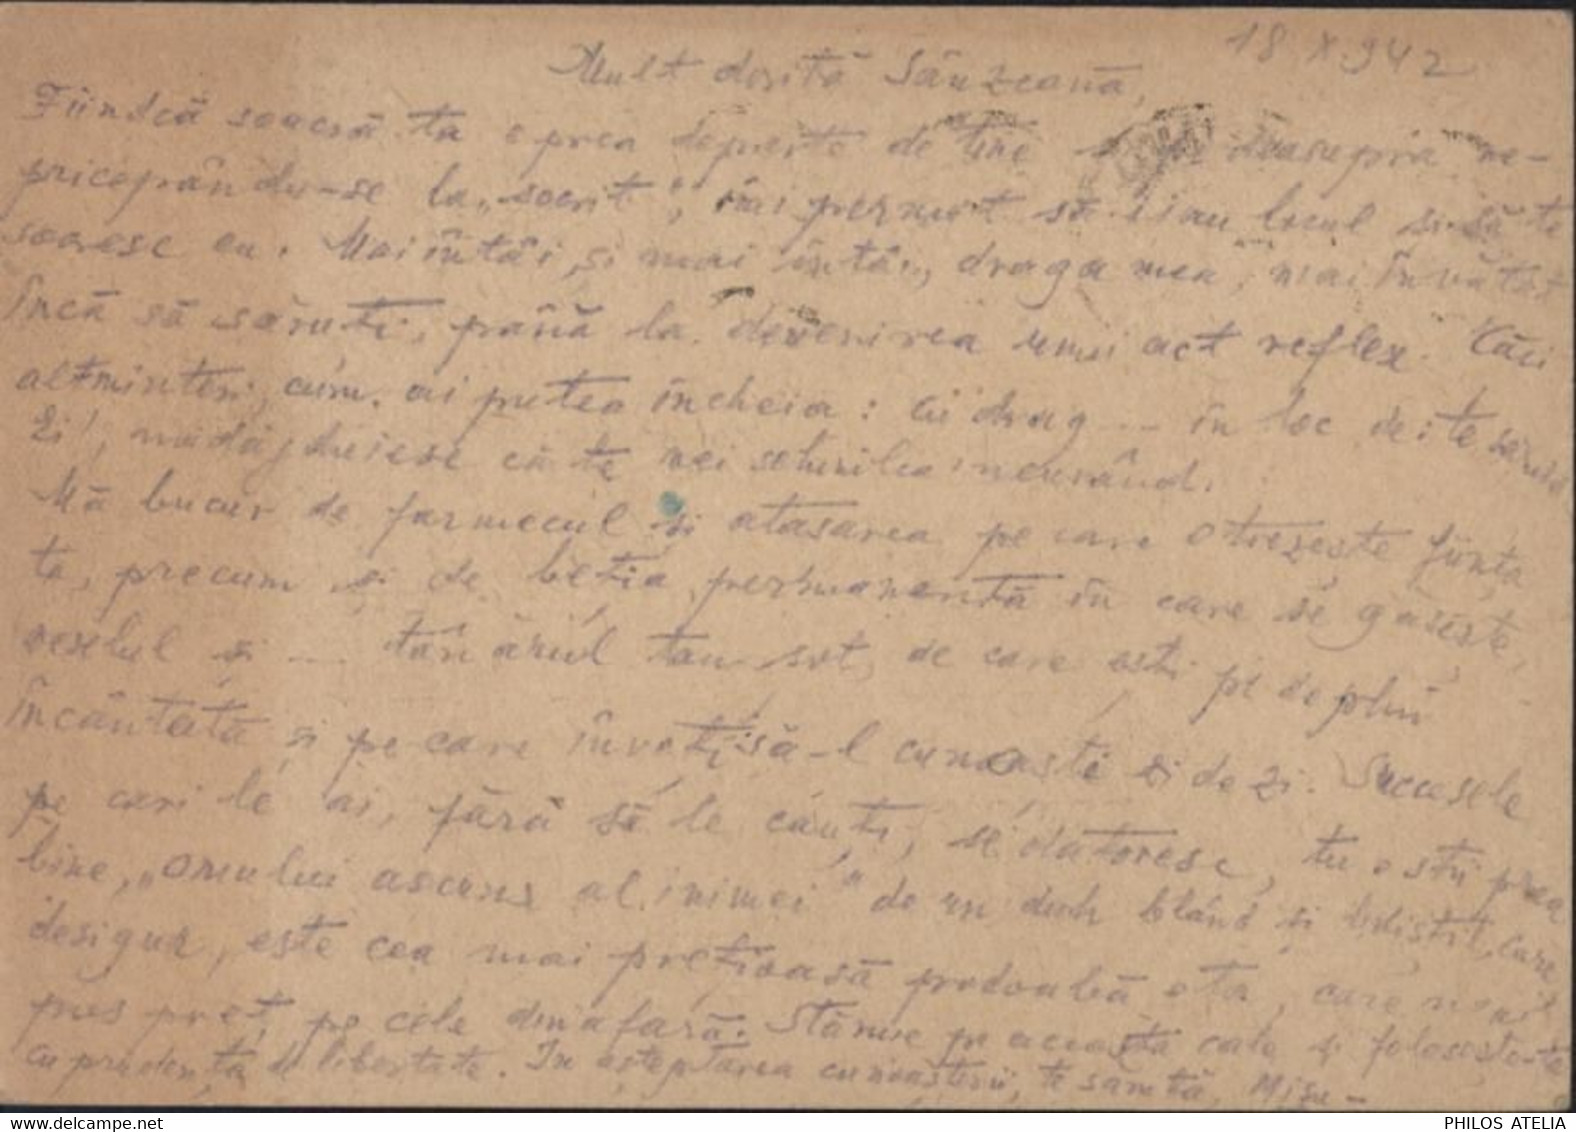 18 X 942
Mult dorită Sânzeană,
Fiindcă soacră-ta e prea departe de tine și pe deasupra ne-
pricepându-se la „socrit”, îmi permit să-i iau locul și să te
soacresc eu. Mai întâi și mai întâi, draga mea, mai învăţat
încă să săruţi, până la devenirea unui act reflex. Căci
altminteri, cum ai putea încheia: cu drag ... în loc de: te sărută
Zi!, nădăjduiesc că te vei
Mă bucur de farmecul și atașarea pe care o trezește fiinţa
ta, precum și de beţia permanentă în care se găsește,
veselul și ... tânărul tău soţ, de care ești pe deplin
încântată și pe care înveţi să-l cunoaști zi de zi. Succesele
pe cari le ai, fără să le cauţi, se datoresc, tu o știi prea
bine, „omului ascuns al inimei” de un duh blând și liniștit, care
desigur, este cea mai preţioasă podoabă a ta, care n'ai
pus preţ pe cele dinafară. Stărue pe această cale și folosește-te
cu prudenţă de libertate. In așteptarea cunoașterii, te sărută, Mișu -
PHILOS ATELIA